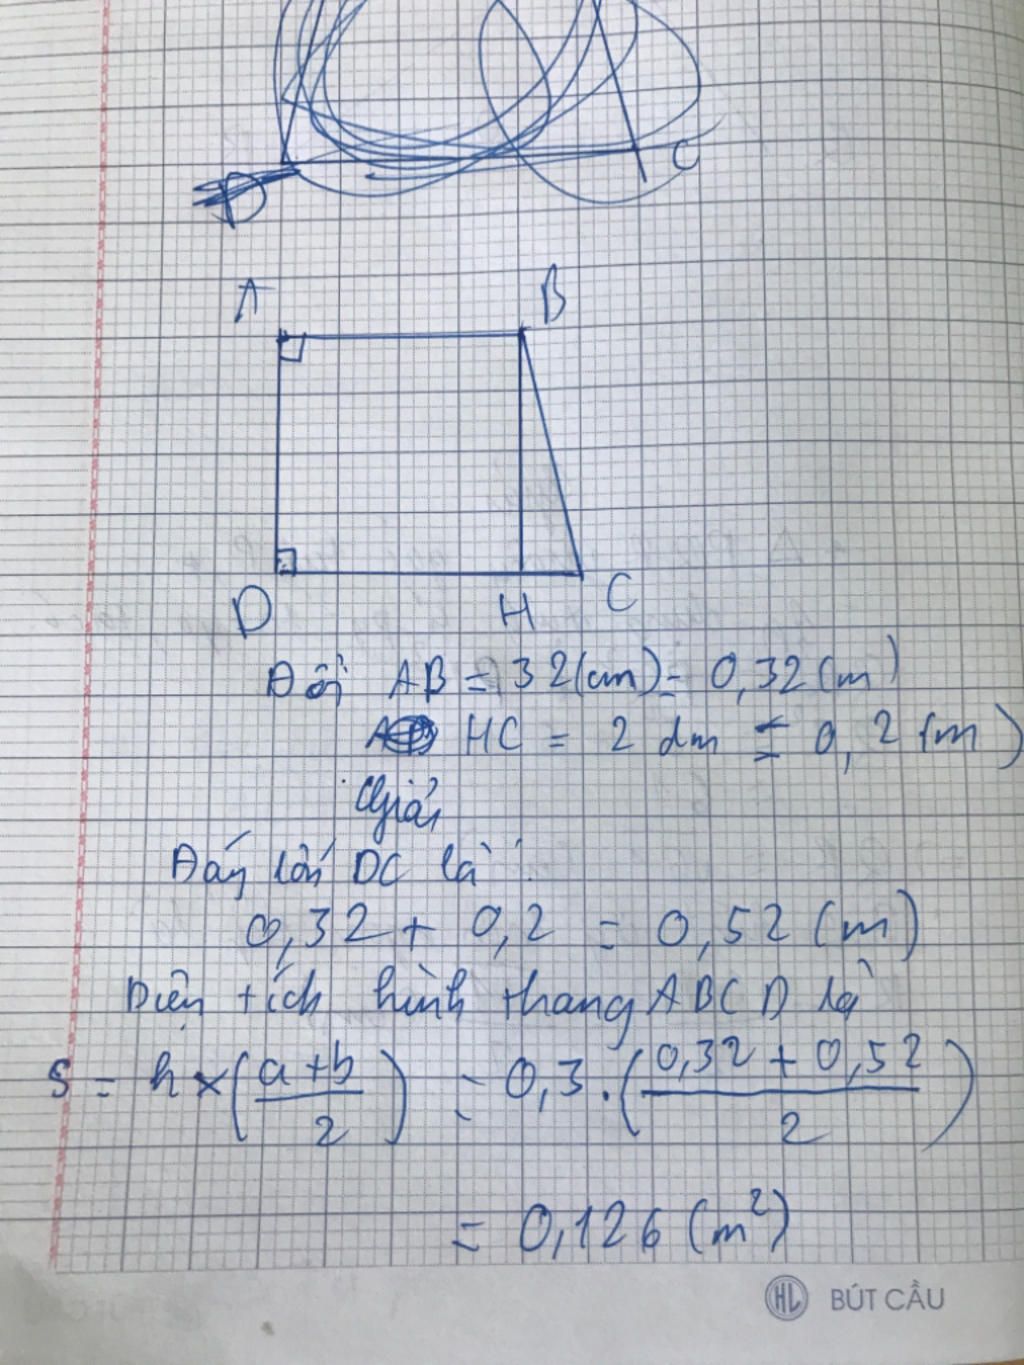 C
D
A B
D H C
Đổi AB = 32(cm) = 0,32 (m)
HC = 2 dm = 0,2 (m)
Giải
Đáy lớn DC là:
0,32 + 0,2 = 0,52 (m)
Diện tích hình thang ABCD là
S = h × (a+b / 2) = 0,3 . (0,32 + 0,52 / 2)
= 0,126 (m²)
HL BÚT CẦU